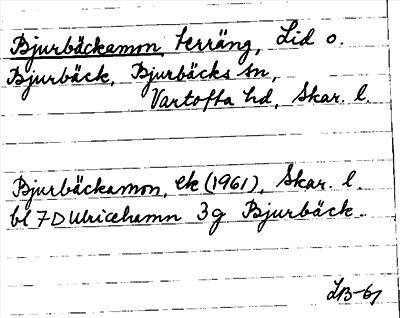 Bjurbäckamon, terräng, Lid o.
Bjurbäck, Bjurbäcks sn,
Vartofta hd, Skar. l.
Bjurbäckamon, ek (1961), Skar. l.
bl 7D Ulricehamn 3g Bjurbäck.
LB-61